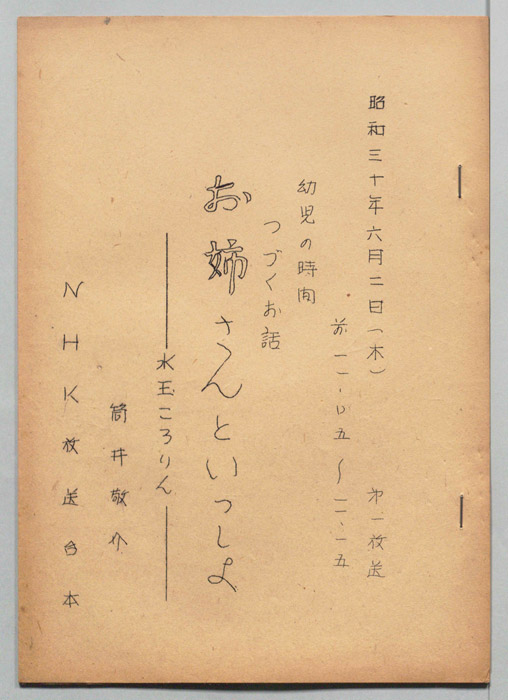 昭和三十年六月二日(木) 第一放送
前一一・〇五〜一一・一五
幼児の時間
つづくお話
お姉さんといっしょ
水玉ころりん
筒井敬介
NHK放送台本